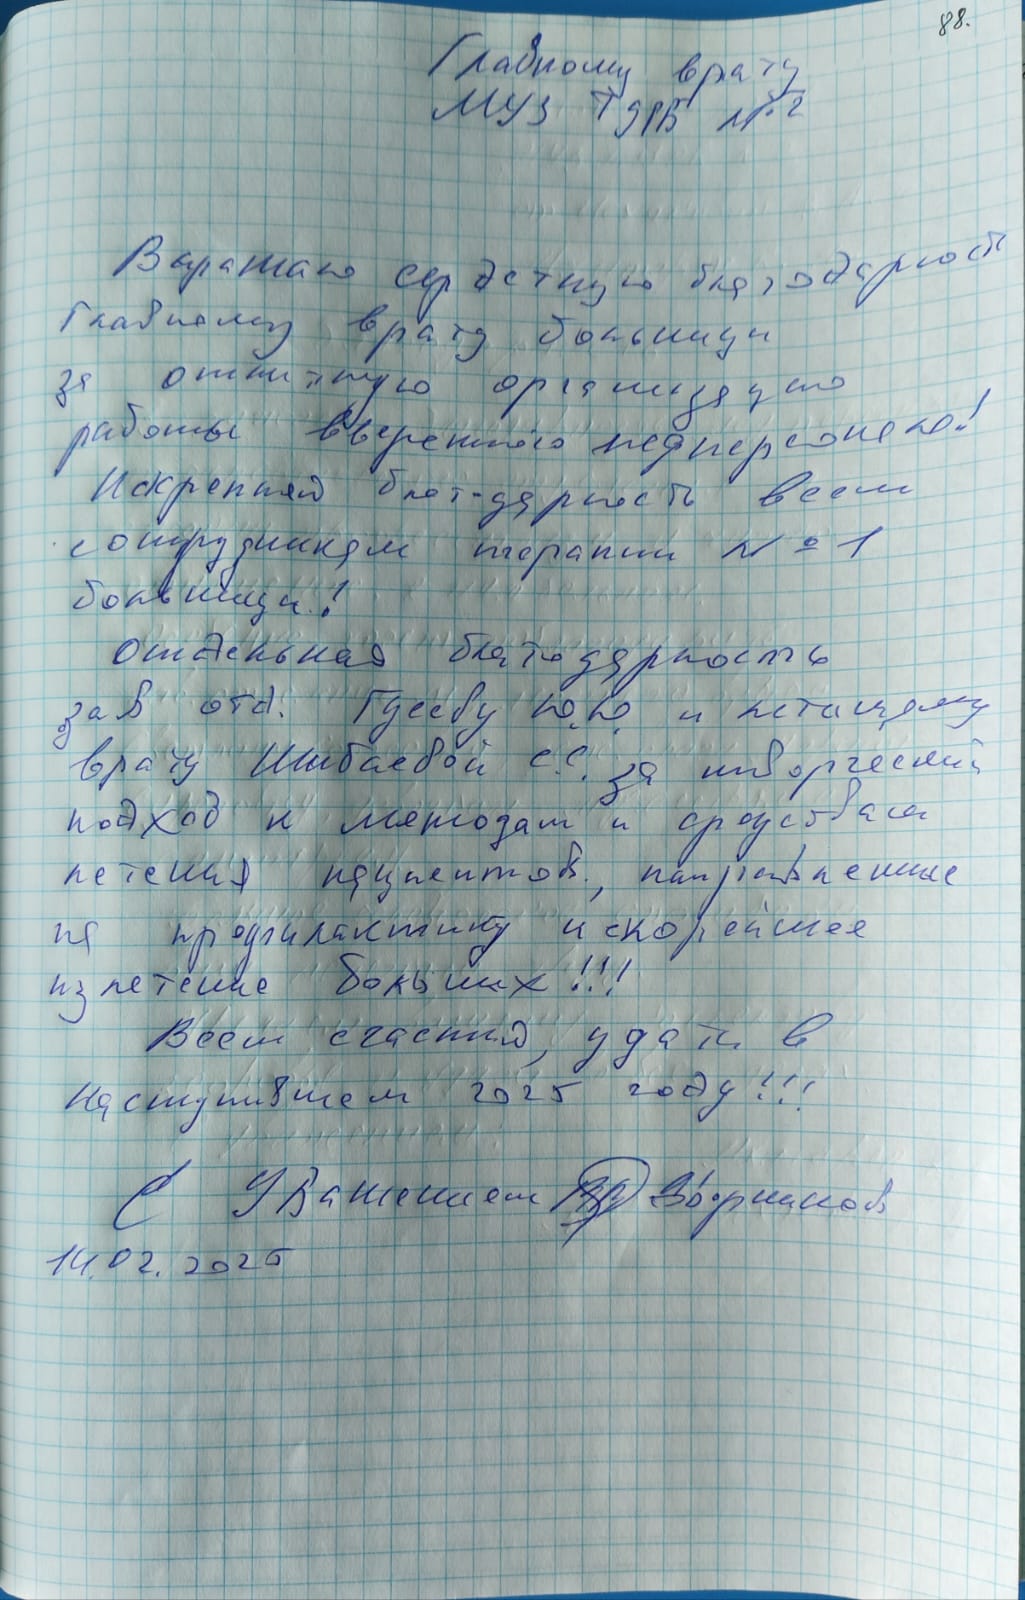 88.
Главному врачу
МУЗ ТЦРБ №2
Выражаю сердечную благодарность
Главному врачу больницы
за отличную организацию
работы вверенного медперсонала!
Искренняя благодарность всем
сотрудникам терапии №1
больницы!
Отдельная благодарность
зав отд. Гусеву Ю.Ю. и лечащему
врачу Шибаевой С.С. за творческий
подход к методам и средствам
лечения пациентов, направленные
на профилактику и скорейшее
излечение больных!!!
Всем счастья, удачи в
наступившем 2025 году!!!
С Уважением Дворников
14.02.2025